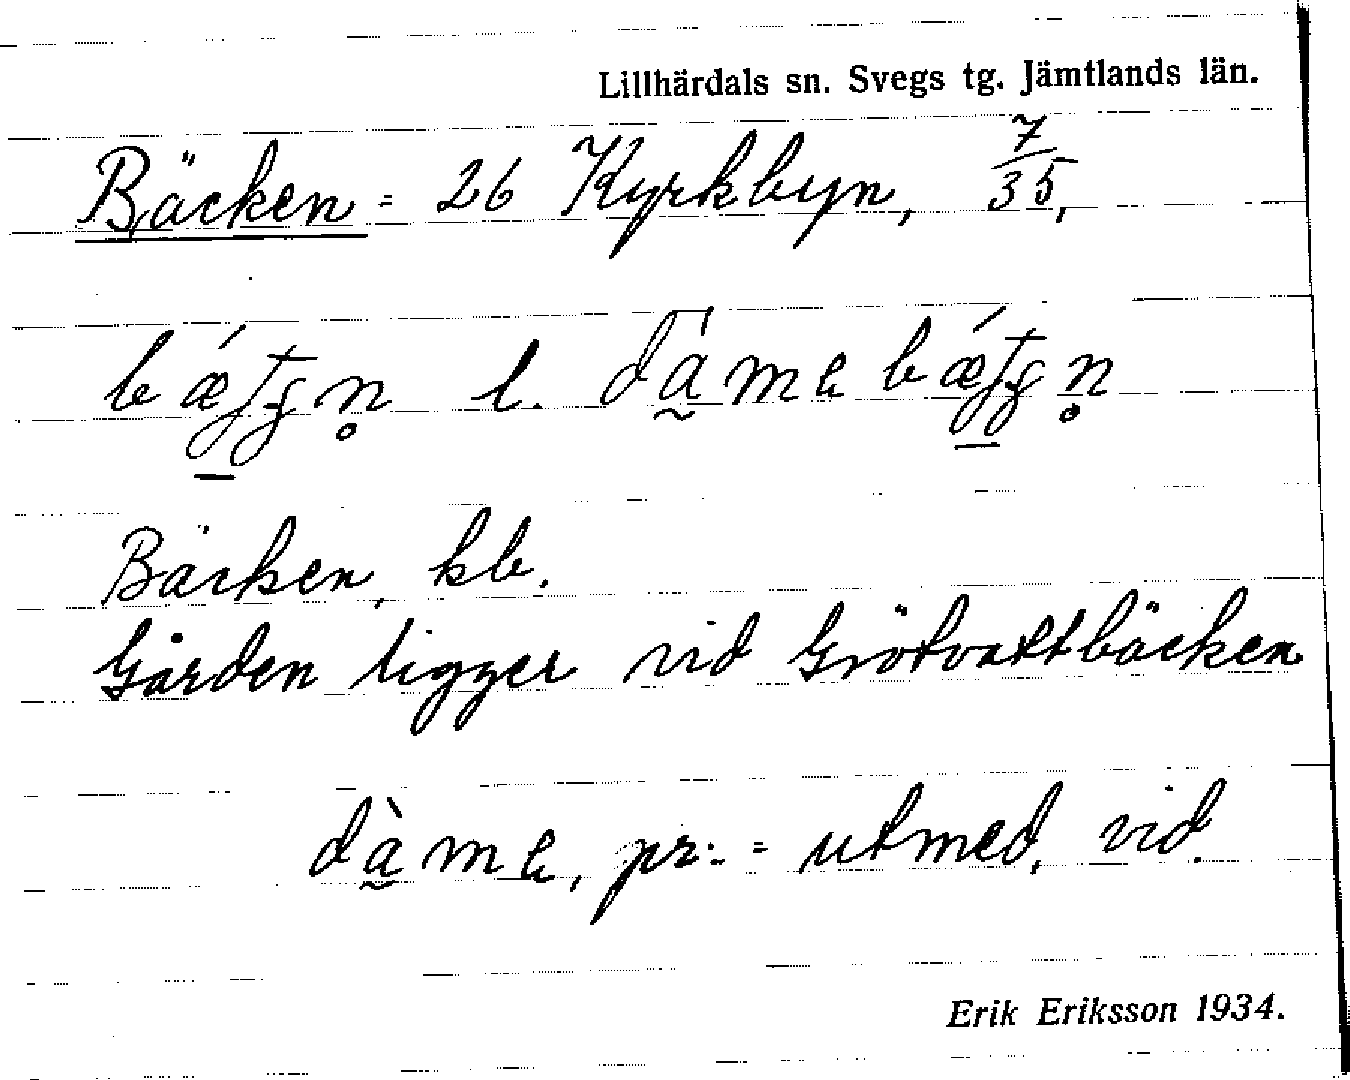 Lillhärdals sn. Svegs tg. Jämtlands län.
Bäcken = 26 Kyrkbyn, 7/35,
l.
Bäcken, kb.
Gården ligger vid Grötvattbäcken
dàme, pr. = utmed, vid.
Erik Eriksson 1934.